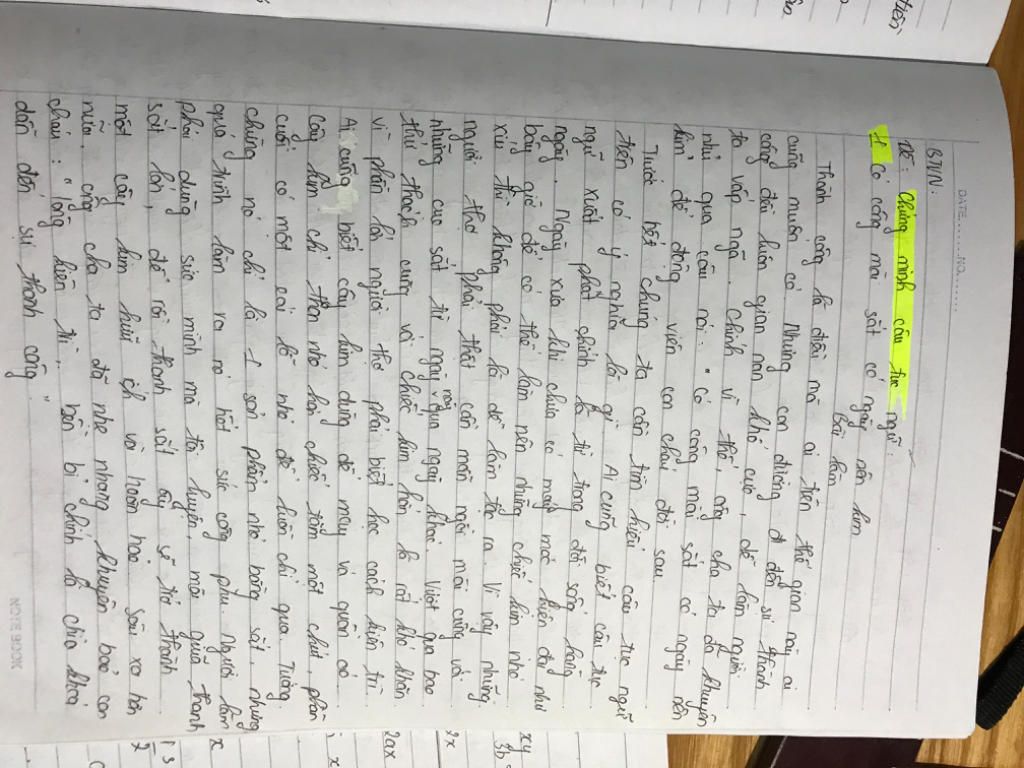 DATE............NO............
BTVN:
Đề: Chứng minh câu tục ngữ:
1. Có công mài sắt có ngày nên kim
Bài làm
Thành công là điều mà ai trên thế gian này ai
cũng muốn có. Nhưng con đường đi đến sự thành
công đầy luôn gian nan khổ cực, dễ làm người
ta vấp ngã. Chính vì thế, ông cha ta đã khuyên
nhủ qua câu nói: " có công mài sắt có ngày nên
kim" để động viên con cháu đời sau.
Trước hết chúng ta cần tìm hiểu câu tục ngữ
trên có ý nghĩa là gì. Ai cũng biết câu tục
ngữ xuất phát chính là từ trong đời sống hằng
ngày. Ngày xưa khi chưa có máy móc hiện đại như
bây giờ để có thể làm nên những chiếc kim nhỏ
xíu thì không phải là dễ làm tiếc ra. Vì vậy những
người thợ phải thật cần mẫn ngồi mài cùng với
những cục sắt từ ngày này qua ngày khác. Vượt qua bao
thử thách cùng với chiếc kim hẳn là rất khó khăn
vì phần lớn người thợ phải biết học cách kiên trì.
Ai cũng biết cây kim dùng để may vá quần áo.
Cây kim chỉ thon nhỏ hơi chiếc tăm một chút, phần
cuối có một cái lỗ nhỏ để luồn chỉ qua. Tưởng
chừng nó chỉ là 1 sản phẩm nhỏ bằng sắt, nhưng
quá trình làm ra nó hết sức công phu. Người làm
phải dùng sức mình mà tôi luyện, mài giũa thanh
sắt lớn, để rồi thanh sắt ấy sẽ trở thành
một cây kim hữu ích và hoàn hảo. Sâu xa hơn
nữa, ông cha ta đã nhẹ nhàng khuyên bảo con
cháu: " lòng kiên trì, bền bỉ chính là chìa khoá
dẫn đến sự thành công."
NOTE BOOK
xy
2x
2ax
x
x